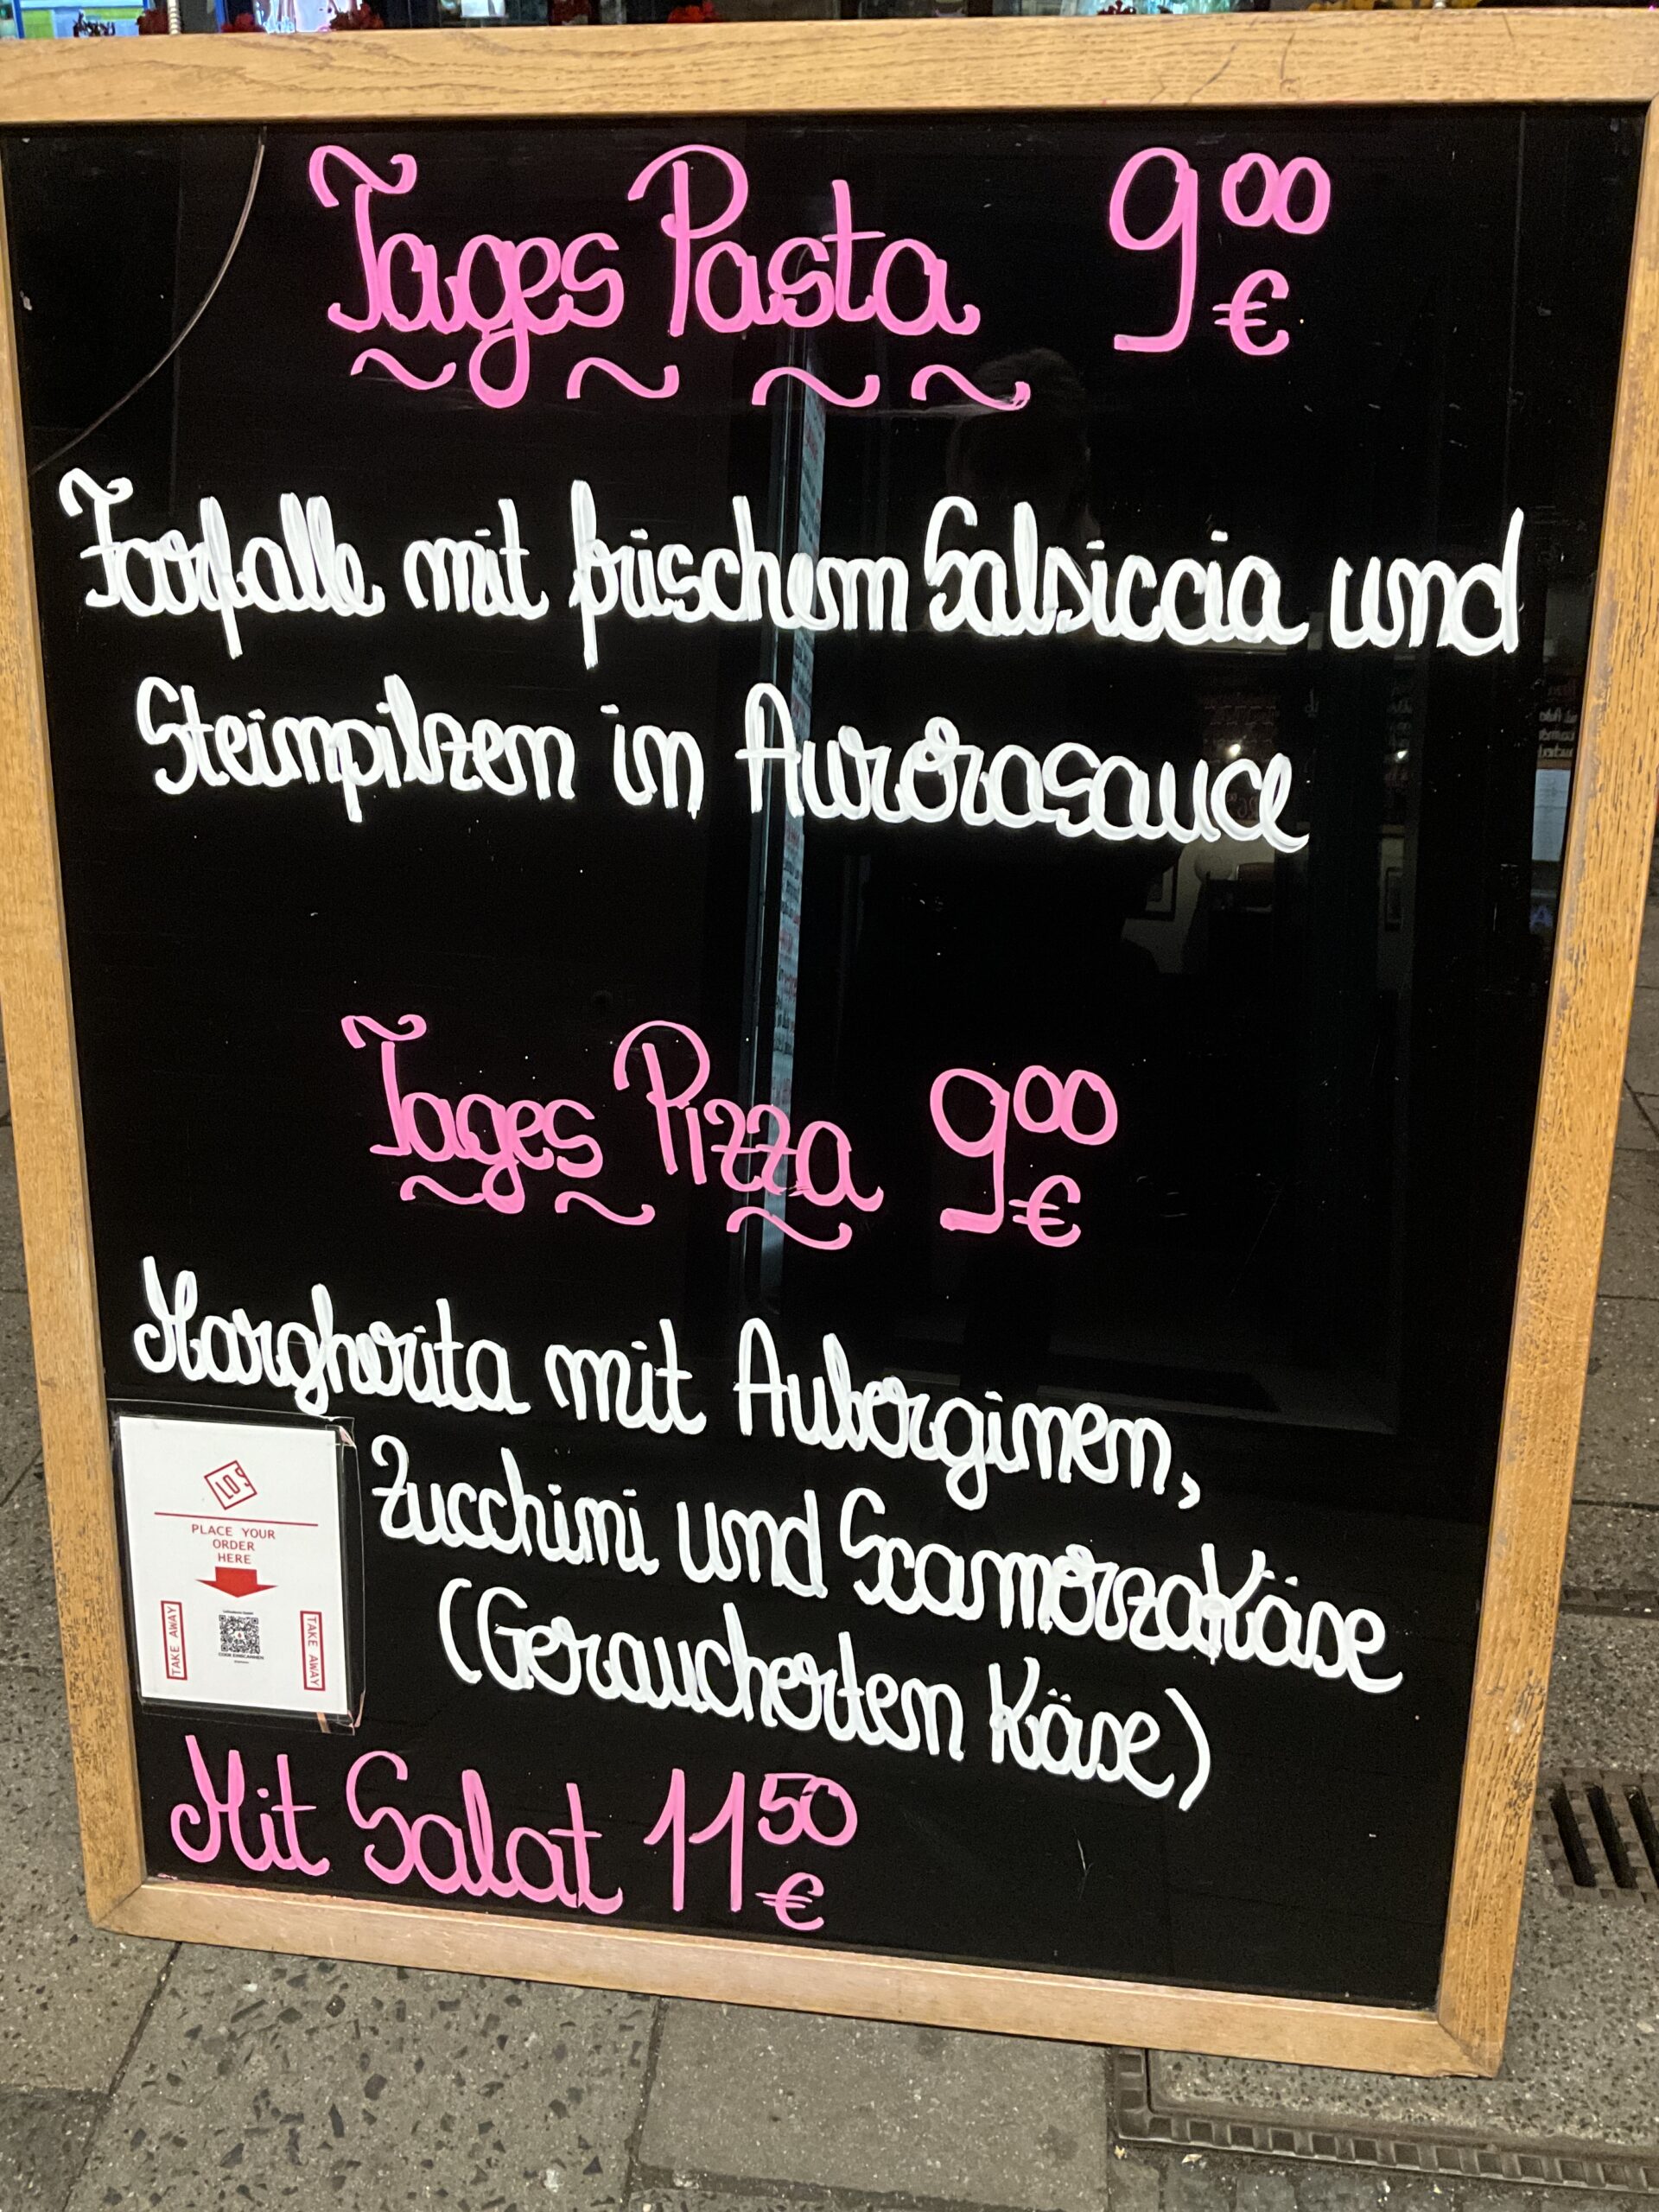 Tages Pasta 9⁰⁰ €
Farfalle mit frischem Salsiccia und
Steinpilzen in Aurorasauce
Tages Pizza 9⁰⁰ €
Margherita mit Auberginen,
Zucchini und ScamorzaKäse
(Geraucherten Käse)
LOS
PLACE YOUR
ORDER
HERE
TAKE AWAY
TAKE AWAY
CODE EINSCANNEN
Mit Salat 11⁵⁰ €